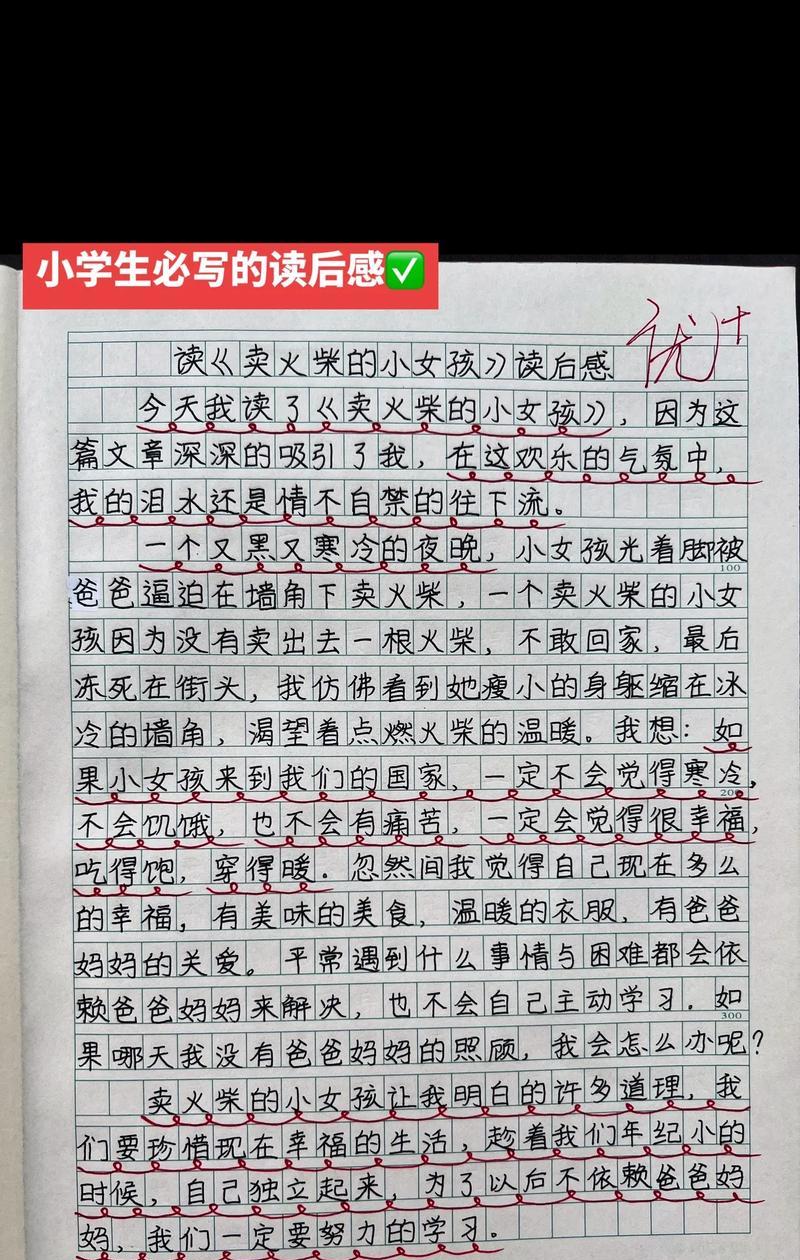 小学生必写的读后感✅
优+
读《卖火柴的小女孩》读后感
今天我读了《卖火柴的小女孩》，因为这
篇文章深深的吸引了我，在这欢乐的气氛中，
我的泪水还是情不自禁的往下流。
一个又黑又寒冷的夜晚，小女孩光着脚被
100
爸爸逼迫在墙角下卖火柴，一个卖火柴的小女
孩因为没有卖出去一根火柴，不敢回家，最后
冻死在街头，我仿佛看到她瘦小的身躯缩在冰
冷的墙角，渴望着点燃火柴的温暖。我想：如
果小女孩来到我们的国家，一定不会觉得寒冷，
200
不会饥饿，也不会有痛苦，一定会觉得很幸福，
吃得饱，穿得暖。忽然间我觉得自己现在多么
的幸福，有美味的美食，温暖的衣服，有爸爸
妈妈的关爱。平常遇到什么事情与困难都会依
赖爸爸妈妈来解决，也不会自己主动学习．如
300
果哪天我没有爸爸妈妈的照顾，我会怎么办呢？
卖火柴的小女孩让我明白的许多道理，我
们要珍惜现在幸福的生活，趁着我们年纪小的
时候，自己独立起来，为了以后不依赖爸爸妈
妈，我们一定要努力的学习。